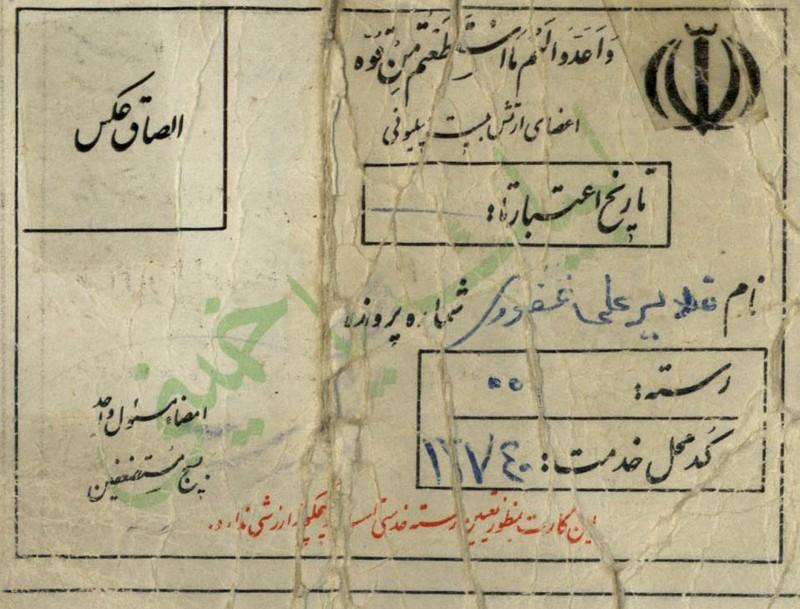 وَاَعِدّوا لَهُم مَا اسْتَطَعْتُم مِنْ قُوَّه
اعضای ارتش بیست میلیونی
الصاق عکس
تاریخ اعتبار تا:
نام علی غفوری شماره پرونده
رسته: ٥٥
کد محل خدمت:
امضاء مسئول واحد
بسیج مستضعفین
این کارت بمنظور تعیین رسته خدمتی است و هیچگونه ارزشی ندارد.